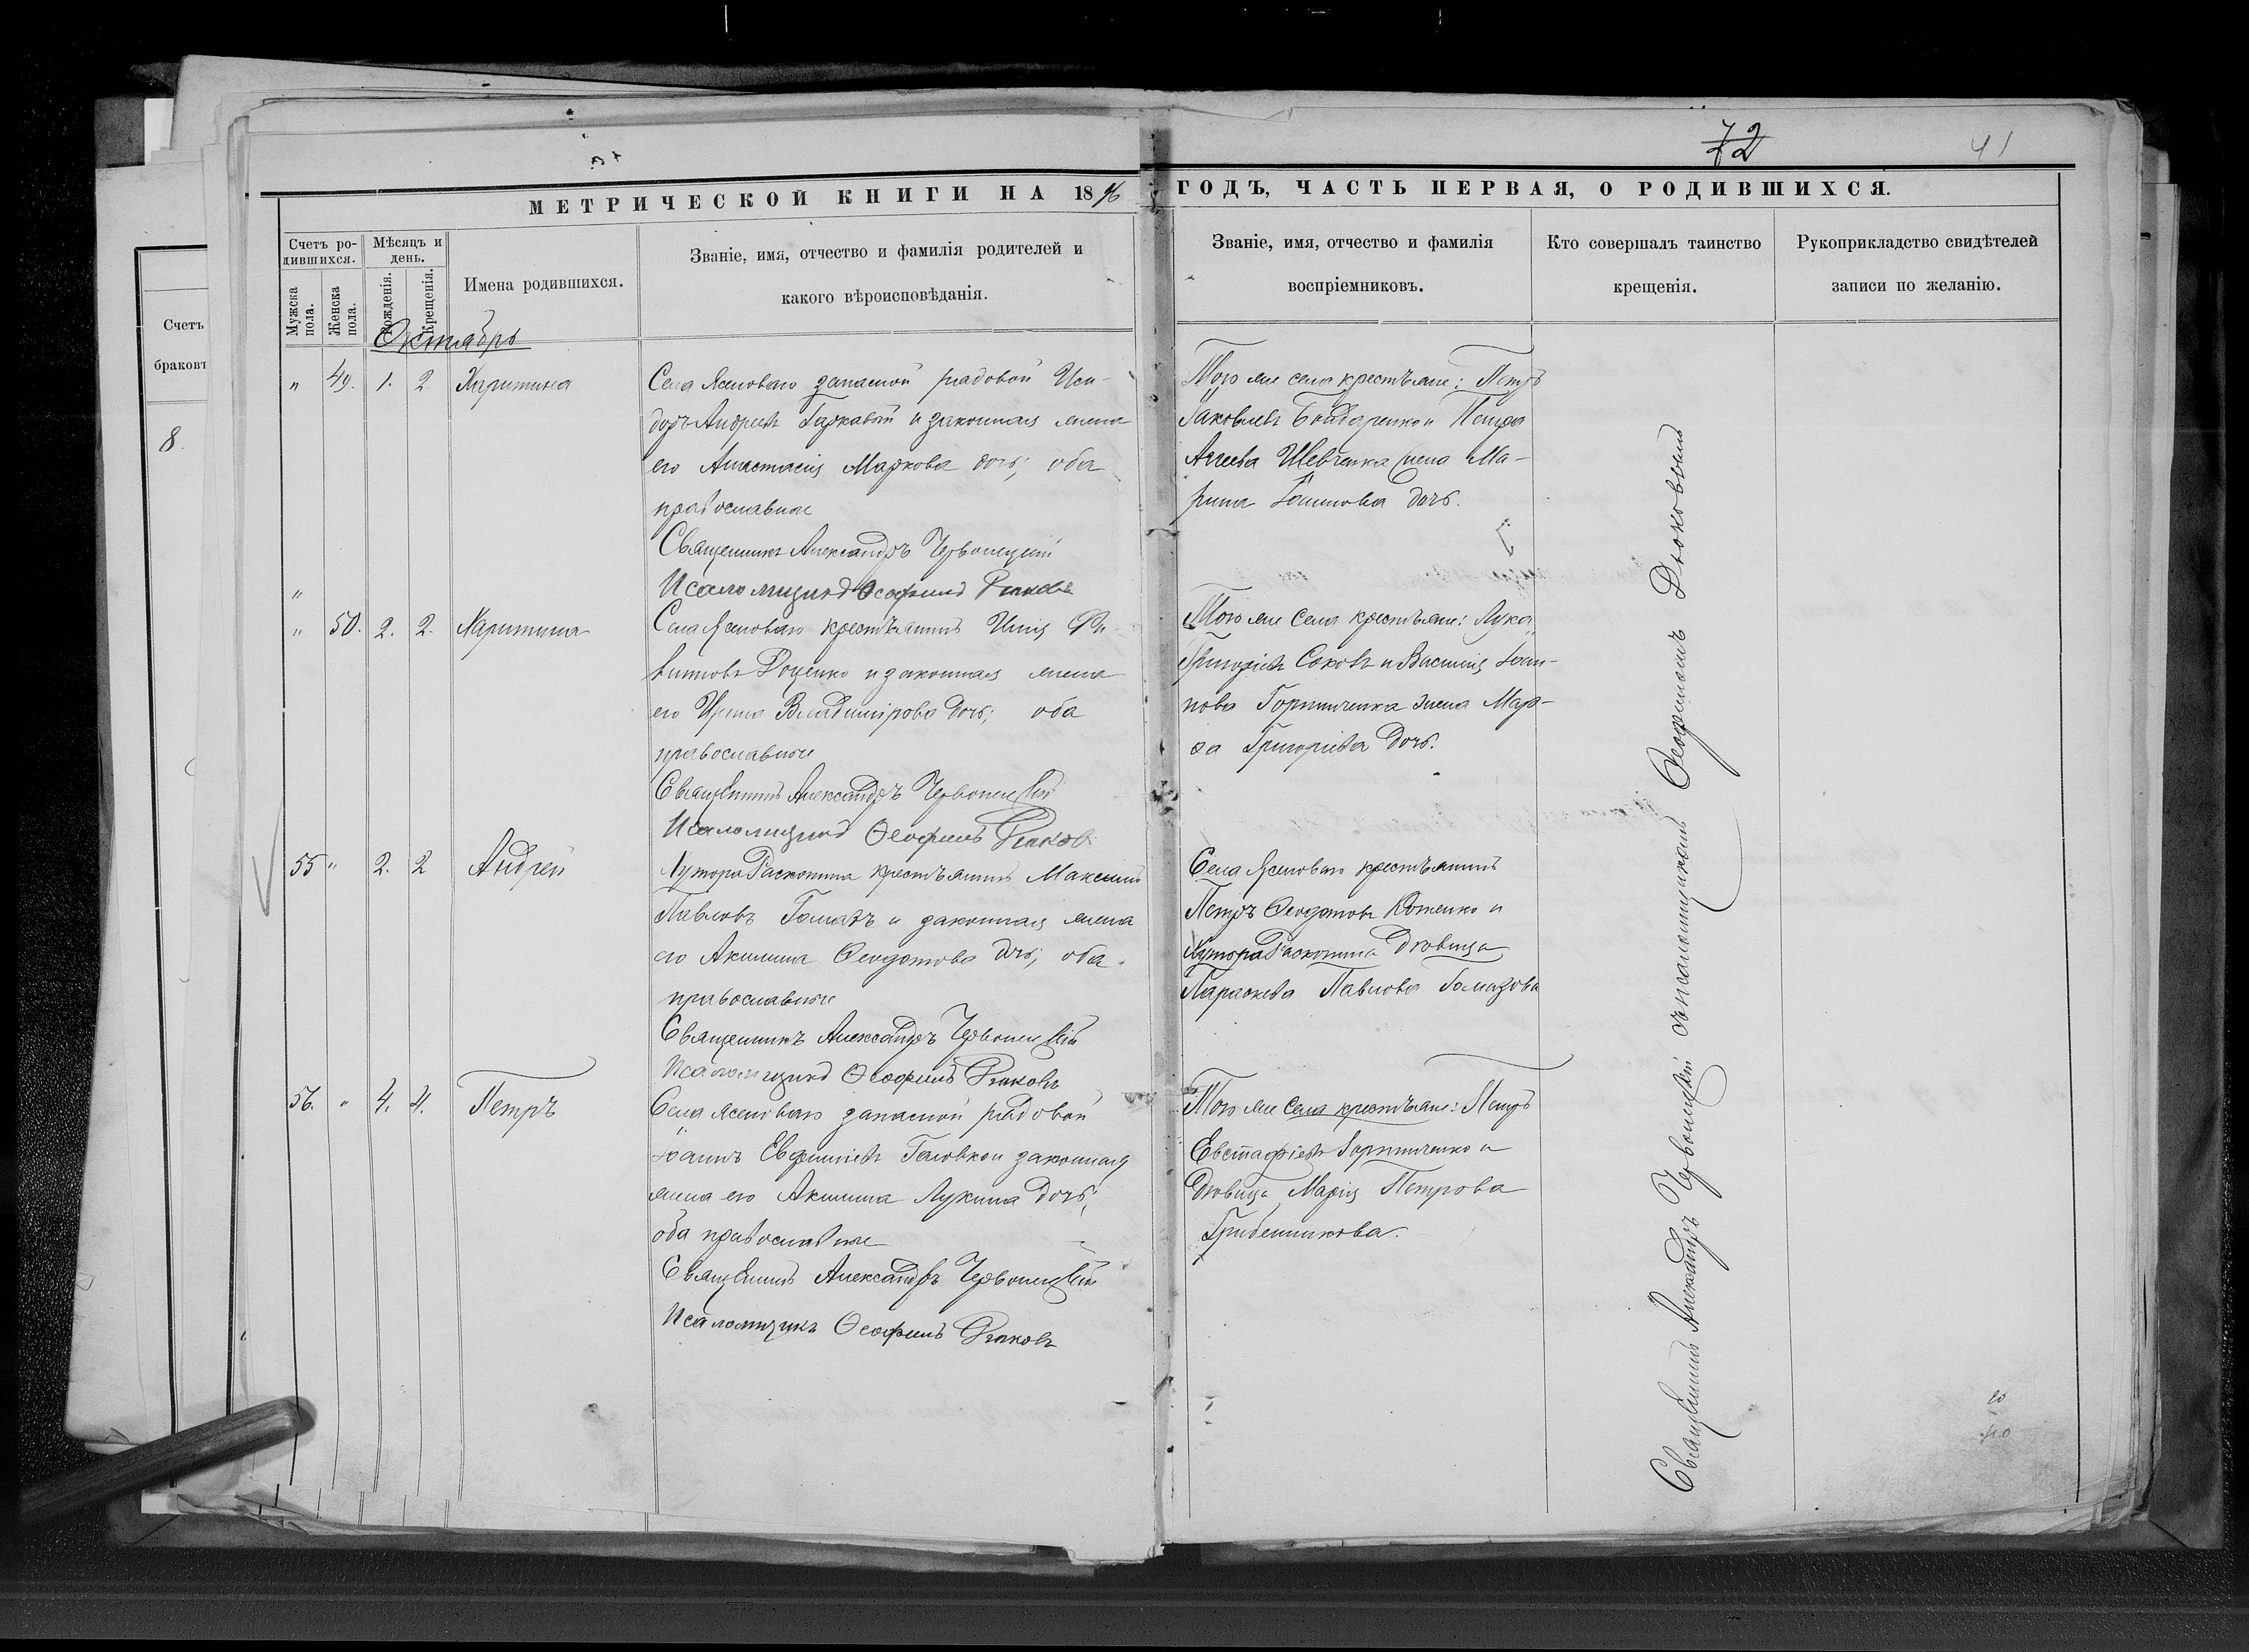 72
41
МЕТРИЧЕСКОЙ КНИГИ НА 1896
ГОДЪ, ЧАСТЬ ПЕРВАЯ, О РОДИВШИХСЯ.
Счетъ
браковъ
8.
Счетъ ро-
дившихся.
Мужска
пола.
Женска
пола.
Мѣсяцъ и
день.
Рожденія.
Крещенія.
Имена родившихся.
Званіе, имя, отчество и фамилія родителей и
какого вѣроисповѣданія.
Званіе, имя, отчество и фамилія
воспріемниковъ.
Кто совершалъ таинство
крещенія.
Рукоприкладство свидѣтелей
записи по желанію.
Октябрь
" 49. 1. 2 Харитина
Села Ясеноваго запасной рядовой Иси-
доръ Андреевъ Гаркавый и законная жена
его Анастасія Маркова дочь; оба
православные
Священникъ Александръ Червонецкій
Псаломщикъ Ѳеофилъ
Того же села крестьяне: Петръ
Іаковлевъ Бондаренко и
Шевченка жена Ма-
рина Іоаннова дочь.
"
" 50. 2. 2. Харитина
Села Ясеноваго крестьянинъ Илія Фи-
липповъ Доценко и законная жена
его Ирина Владимірова дочь; оба
православные
Священникъ Александръ Червонецкій
Псаломщикъ Ѳеофилъ
Того же села крестьяне: Лука
Григоріевъ и Василія Іоан-
нова Горпинченка жена Мар-
ѳа Григоріева дочь.
55 " 2. 2 Андрей
Хутора Раскопина крестьянинъ Максимъ
Павловъ Гомазъ и законная жена
его Акилина Ѳеодотова дочь; оба
православные
Священникъ Александръ Червонецкій
Псаломщикъ Ѳеофилъ
Села Ясеноваго крестьянинъ
Петръ Ѳеодотовъ Котенко и
Хутора Раскопина дѣвица
Параскева Павлова Гомазова
56. " 4. 4. Петръ
Села Ясеноваго запасной рядовой
Іоаннъ Евфиміевъ Головко и законная
жена его Акилина Лукина дочь;
оба православные
Священникъ Александръ Червонецкій
Псаломщикъ Ѳеофилъ
Того же села крестьяне: Петръ
Евстафіевъ Горпинченко и
дѣвица Марія Петрова
Гребенникова.
Священникъ Александръ Червонецкій съ псаломщикомъ Ѳеофиломъ